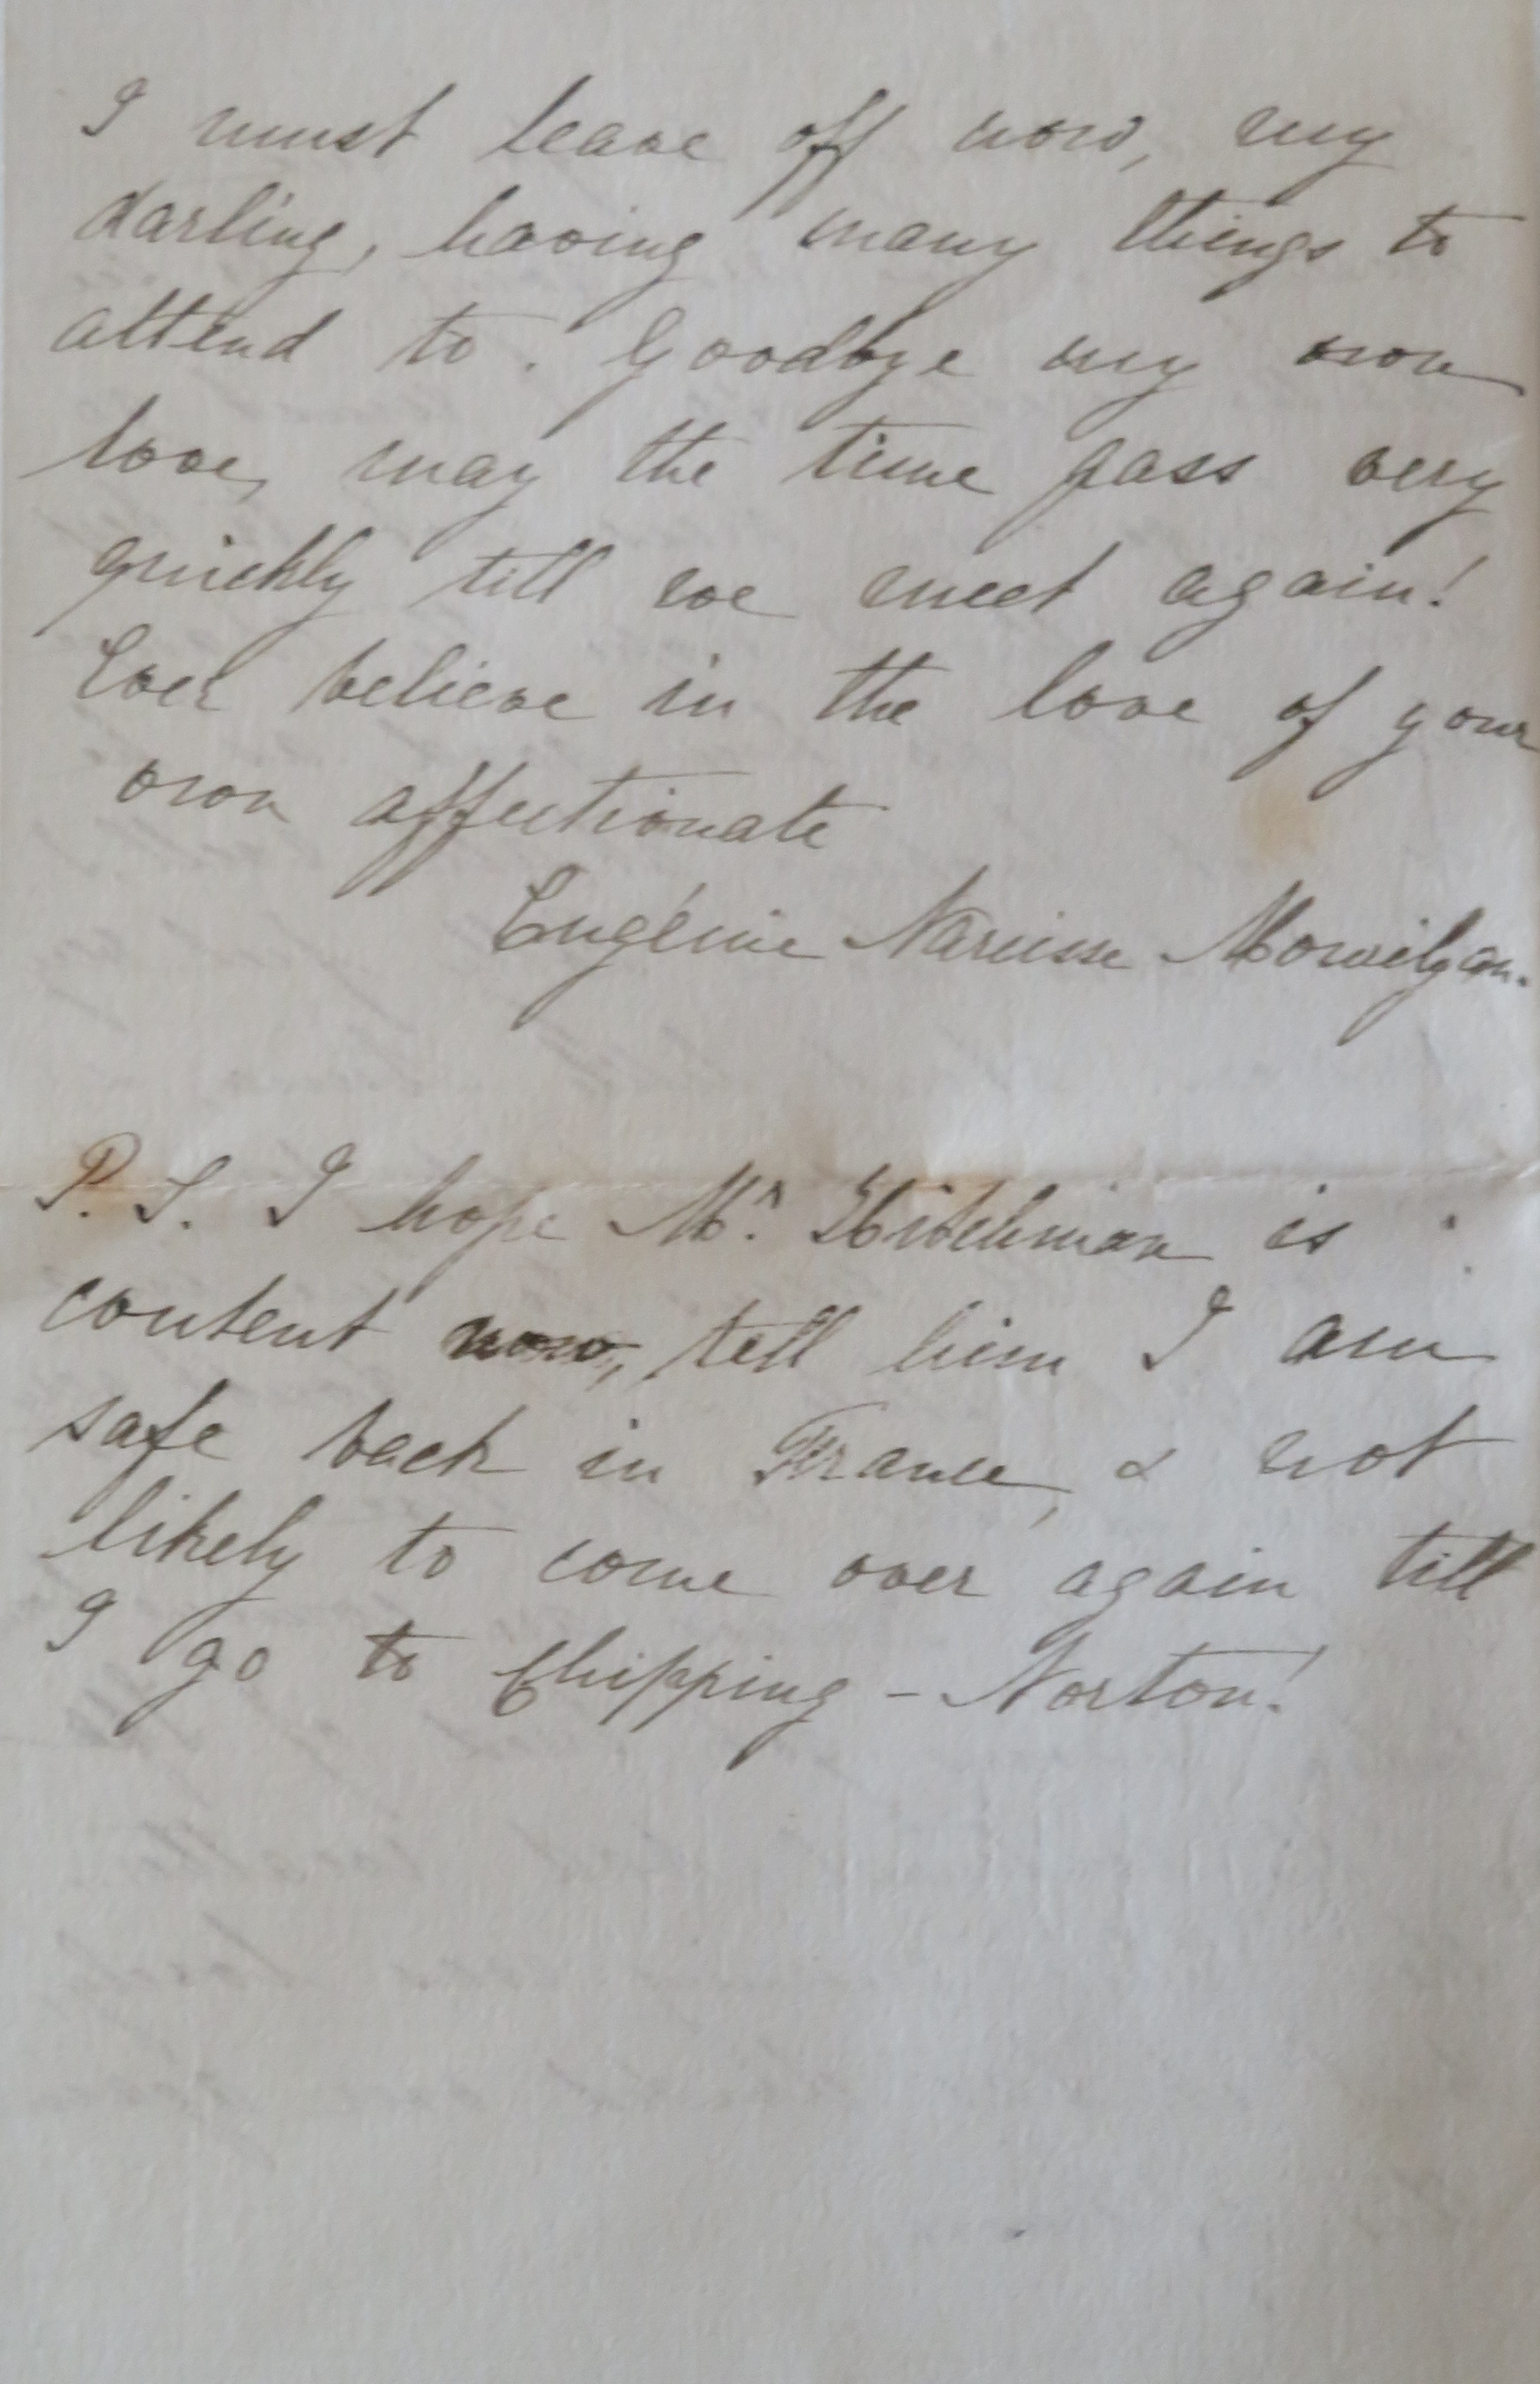 I must leave off now, my
darling, having many things to
attend to. Goodbye my own
love, may the time pass very
quickly till we meet again!
Ever believe in the love of your
own affectionate
Eugénie Narcisse
P. S. I hope Mr. Hitchman is
content now, tell him I am
safe back in France, & not
likely to come over again till
I go to Chipping - Norton!